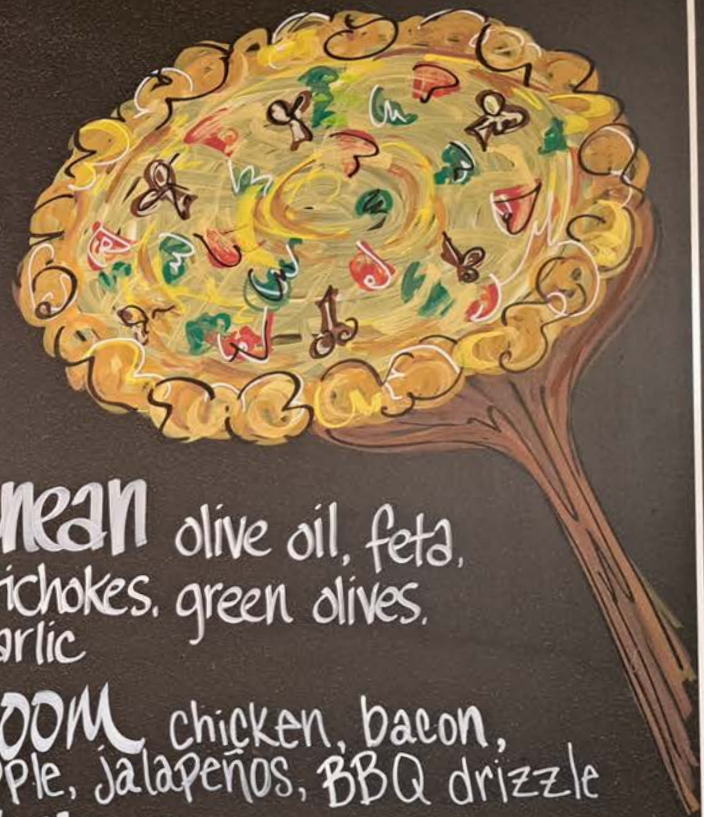 nean olive oil, feta,
ichokes, green olives,
arlic
OOM chicken, bacon,
ple, jalapeños, BBQ drizzle